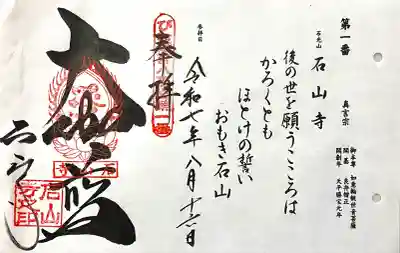 第一番
真言宗
御本尊 如意輪観世音菩薩
開基 良弁僧正
開創年 天平勝宝元年
石光山
石山寺
後の世を願うこころは
かろくとも
ほとけの誓い
おもき石山
参拝日
令和七年八月十六日
奉拝
大伽藍
石山寺